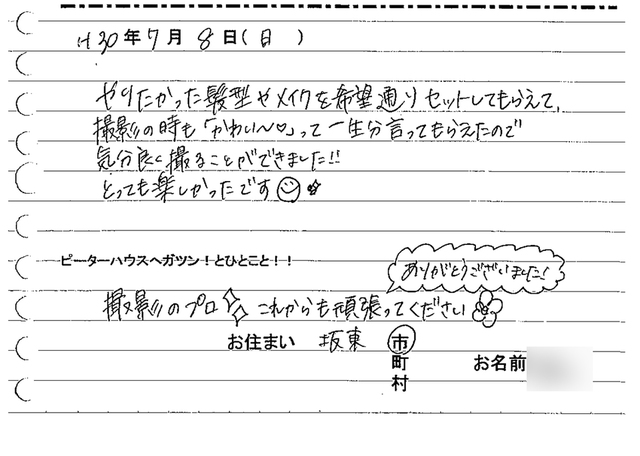 H30年7月8日(日)
やりたかった髪型やメイクを希望通りセットしてもらえて、
撮影の時も「かわい〜♡」って一生分言ってもらえたので
気分良く撮ることができました!!
とっても楽しかったです
ピーターハウスへガツン!とひとこと!!
ありがとうございました!
撮影のプロ これからも頑張ってください
お住まい 坂東 市
町 お名前
村